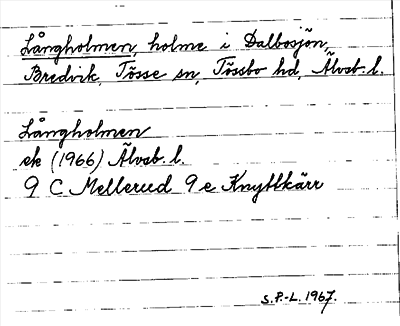 Långholmen, holme i Dalbosjön,
Bredvik, Tösse sn, Tössbo hd, Älvsb. l.
Långholmen
ek (1966) Älvsb. l.
9 C Mellerud 9 e Knyttkärr
S.P.-L. 1967.